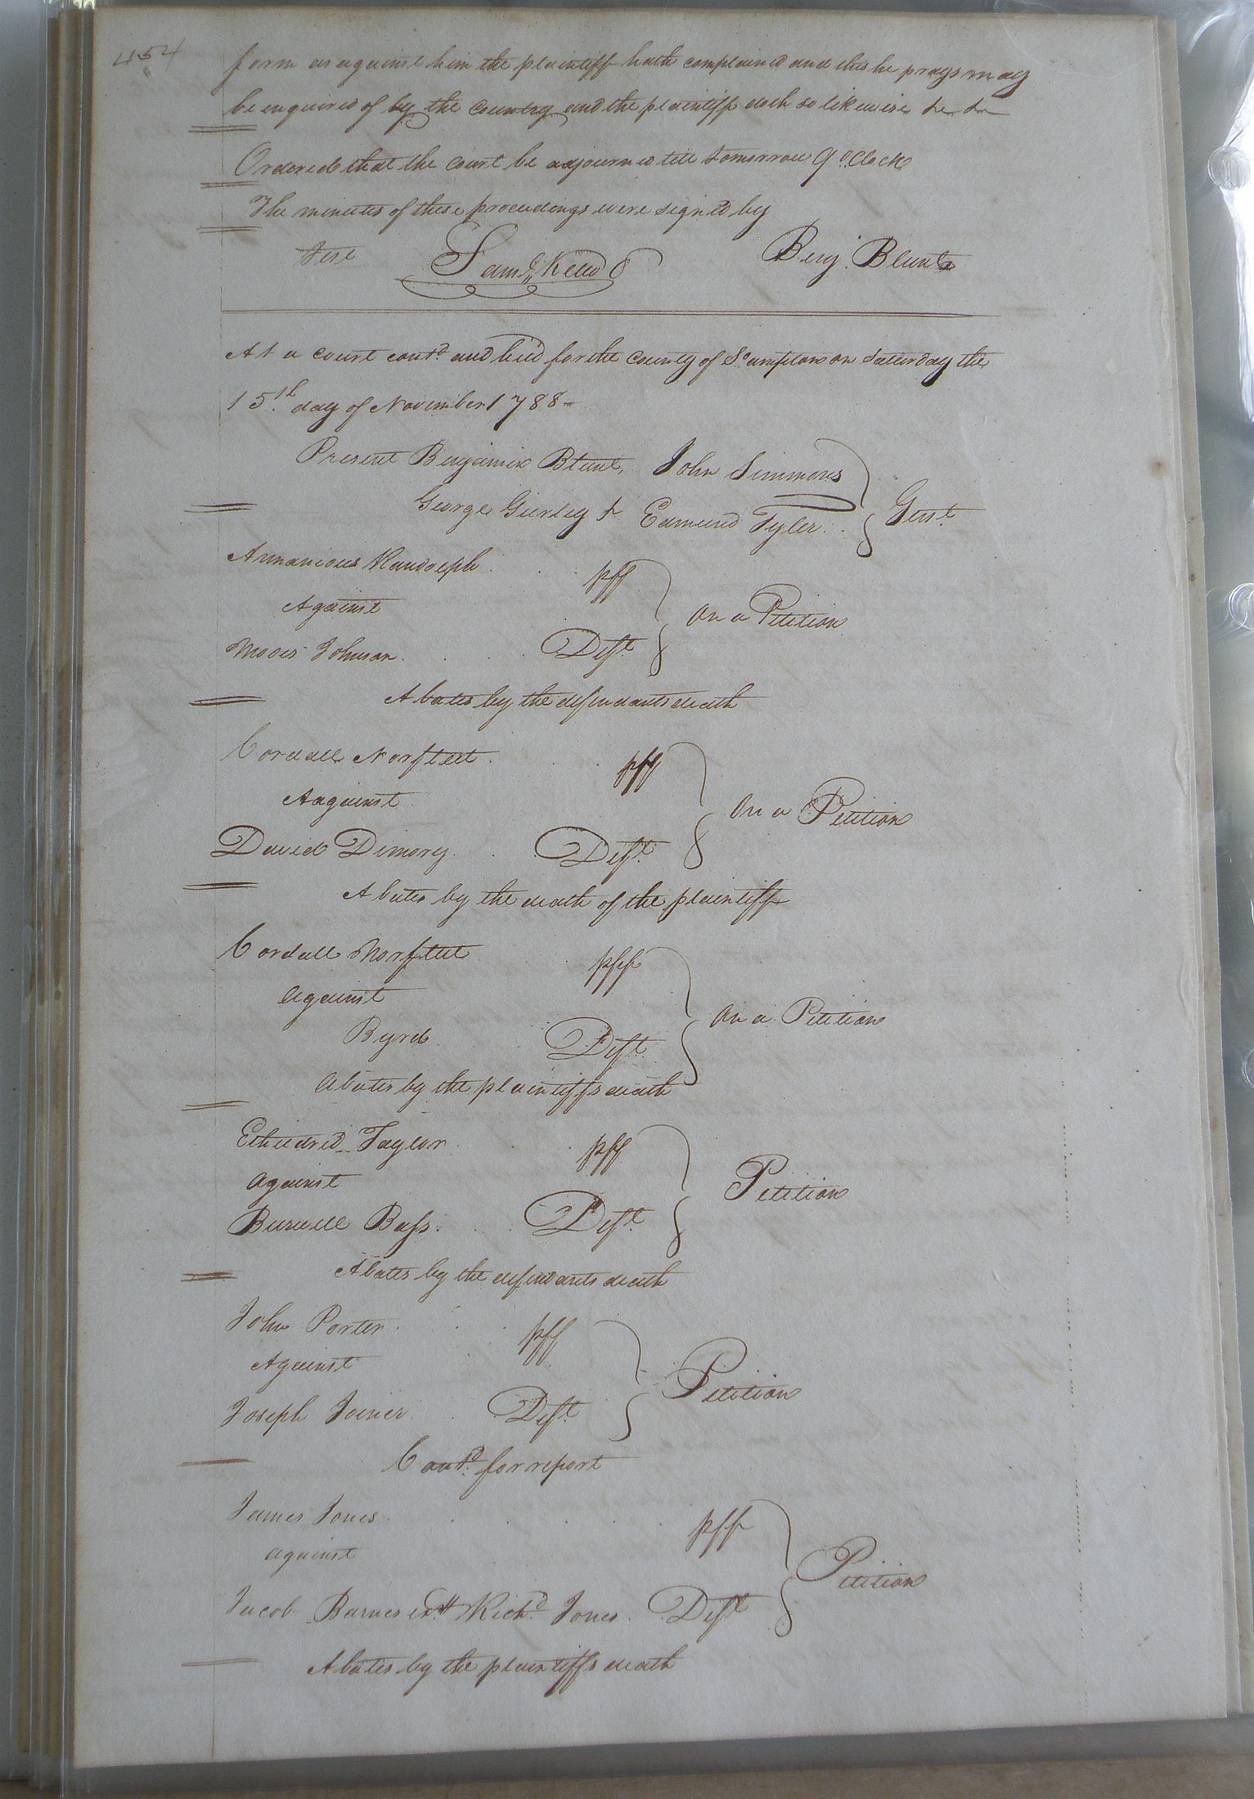 454
form as against him the plaintiff hath complained and this he prays may
be enquired of by the Country and the plaintiff doth so likewise &c &c
Ordered that the Court be adjourned till tomorrow 9 oClock
The minutes of these proceedings were signed by
Test Saml. Kello Benj. Blunt
At a court contd. and held for the County of So.ampton on Saturday the
15th. day of November 1788
Present Benjamin Blunt, John Simmons
George Gurley & Edmund Tyler Gent.
Ammanious Randolph pff
Against On a Petition
Moses Johnson Deft
Abates by the defendants death
Cordall Norfleet pff
Aagainst On a Petition
David Dimory Deft.
Abates by the death of the plaintiff
Cordall Norfleet pff
against On a Petition
Byrd Deft
Abates by the plaintiffs death
Etheldred Taylor pff
against Petition
Burwell Bass Deft.
Abates by the defendants death
John Porter pff
Against Petition
Joseph Joiner Deft
Contd. for report
James Jones pff
against Petition
Jacob Barnes Richd. Jones Deft
Abates by the plaintiffs death